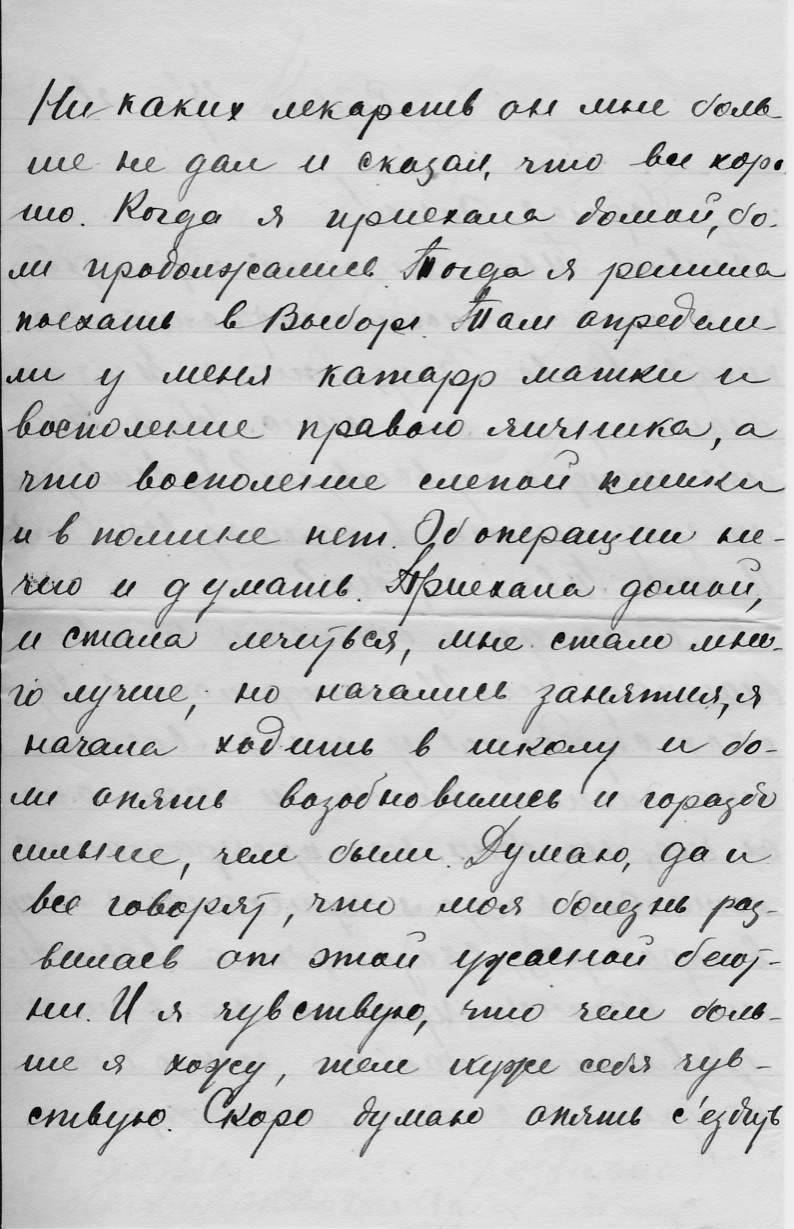 Ни каких лекарств он мне боль-
ше не дал и сказал, что все хоро
шо. Когда я приехала домой, бо-
ли продолжались. Тогда я решила
поехать в Выборг. Там определи-
ли у меня катарр матки и
восполение правого яичника, а
что восполение слепой кишки
и в помине нет. Об операции не-
чего и думать. Приехала домой,
и стала лечиться, мне стало мно-
го лучше, но начались занятия, я
начала ходить в школу и бо-
ли опять возобновились и гораздо
сильнее, чем были. Думаю, да и
все говорят, что моя болезнь раз-
вилась от этой ужасной бегот-
ни. И я чувствую, что чем боль-
ше я хожу, тем хуже себя чув-
ствую. Скоро думаю опять с'ездить